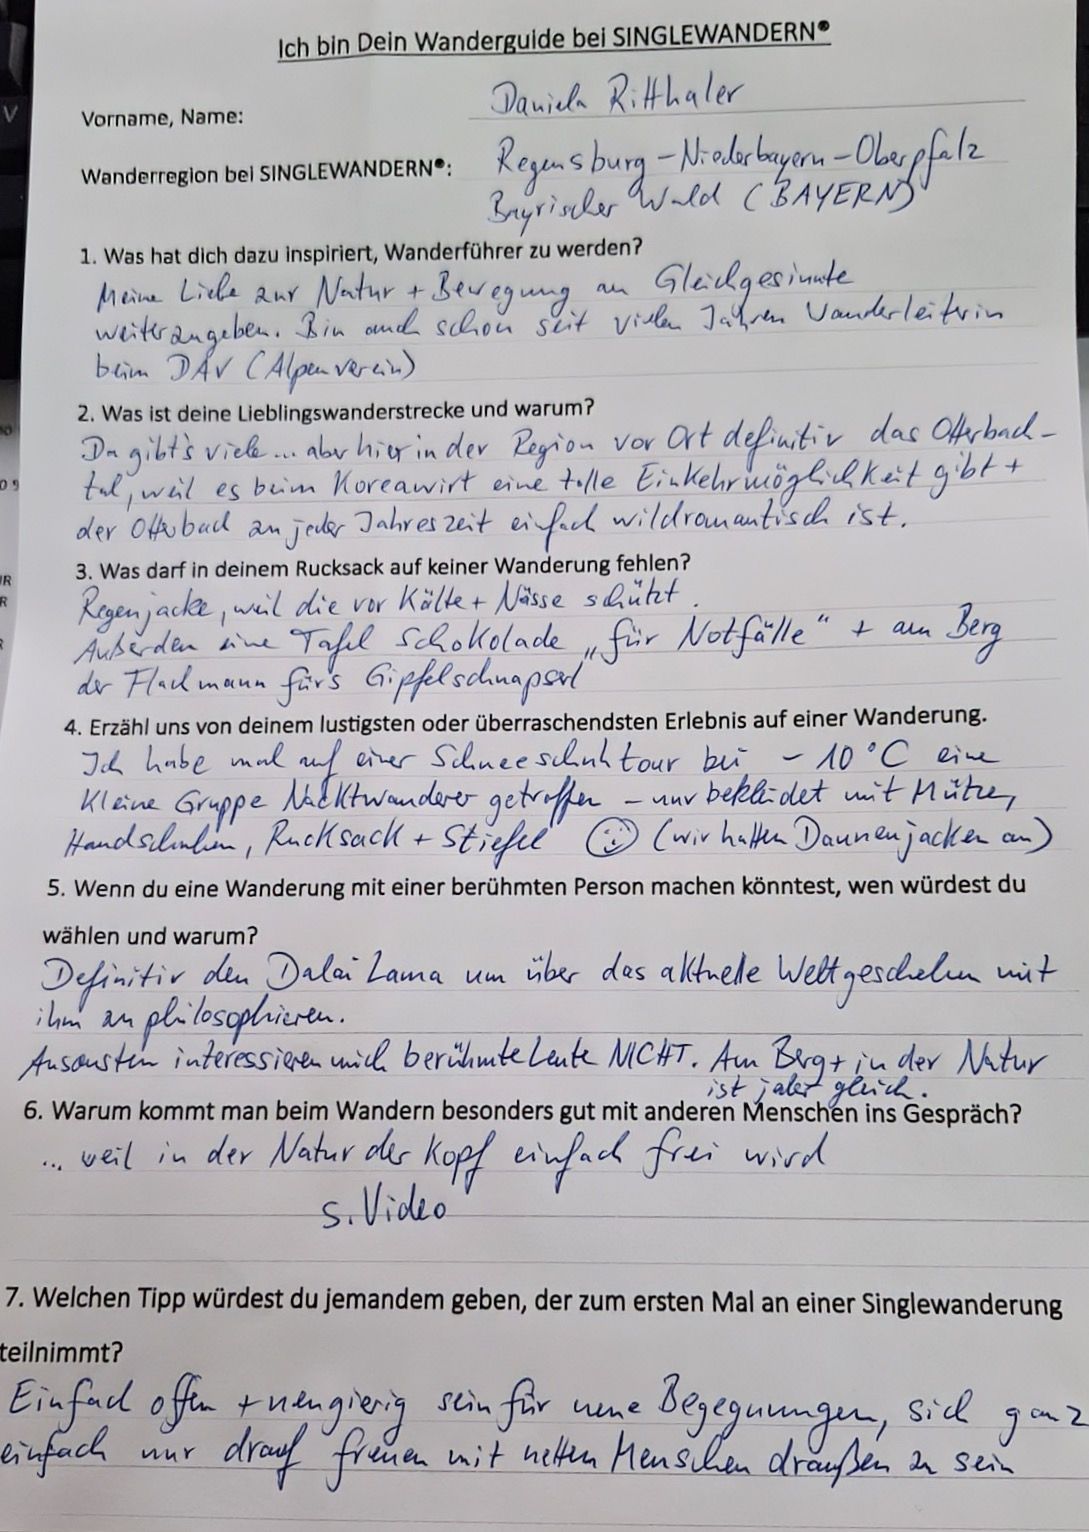 Ich bin Dein Wanderguide bei SINGLEWANDERN®
Vorname, Name: Daniela Ritthaler
Wanderregion bei SINGLEWANDERN®: Regensburg - Niederbayern - Oberpfalz
Bayrischer Wald (BAYERN)
1. Was hat dich dazu inspiriert, Wanderführer zu werden?
Meine Liebe zur Natur + Bewegung an Gleichgesinnte
weiterzugeben. Bin auch schon seit vielen Jahren Wanderleiterin
beim DAV (Alpenverein)
2. Was ist deine Lieblingswanderstrecke und warum?
Da gibt's viele... aber hier in der Region vor Ort definitiv das Otterbach-
tal, weil es beim Koreawirt eine tolle Einkehrmöglichkeit gibt +
der Otterbach zu jeder Jahreszeit einfach wildromantisch ist.
3. Was darf in deinem Rucksack auf keiner Wanderung fehlen?
Regenjacke, weil die vor Kälte + Nässe schützt.
Außerdem eine Tafel Schokolade „für Notfälle“ + am Berg
der Flachmann fürs Gipfelschnapserl
4. Erzähl uns von deinem lustigsten oder überraschendsten Erlebnis auf einer Wanderung.
Ich habe mal auf einer Schneeschuhtour bei - 10 °C eine
kleine Gruppe Nacktwanderer getroffen - nur bekleidet mit Mütze,
Handschuhen, Rucksack + Stiefel ☺ (wir hatten Daunenjacken an)
5. Wenn du eine Wanderung mit einer berühmten Person machen könntest, wen würdest du
wählen und warum?
Definitiv den Dalai Lama um über das aktuelle Weltgeschehen mit
ihm zu philosophieren.
Ansonsten interessieren mich berühmte Leute NICHT. Am Berg + in der Natur
ist jeder gleich.
6. Warum kommt man beim Wandern besonders gut mit anderen Menschen ins Gespräch?
... weil in der Natur der Kopf einfach frei wird
s. Video
7. Welchen Tipp würdest du jemandem geben, der zum ersten Mal an einer Singlewanderung
teilnimmt?
Einfach offen + neugierig sein für neue Begegnungen, sich ganz
einfach nur drauf freuen mit netten Menschen draußen zu sein